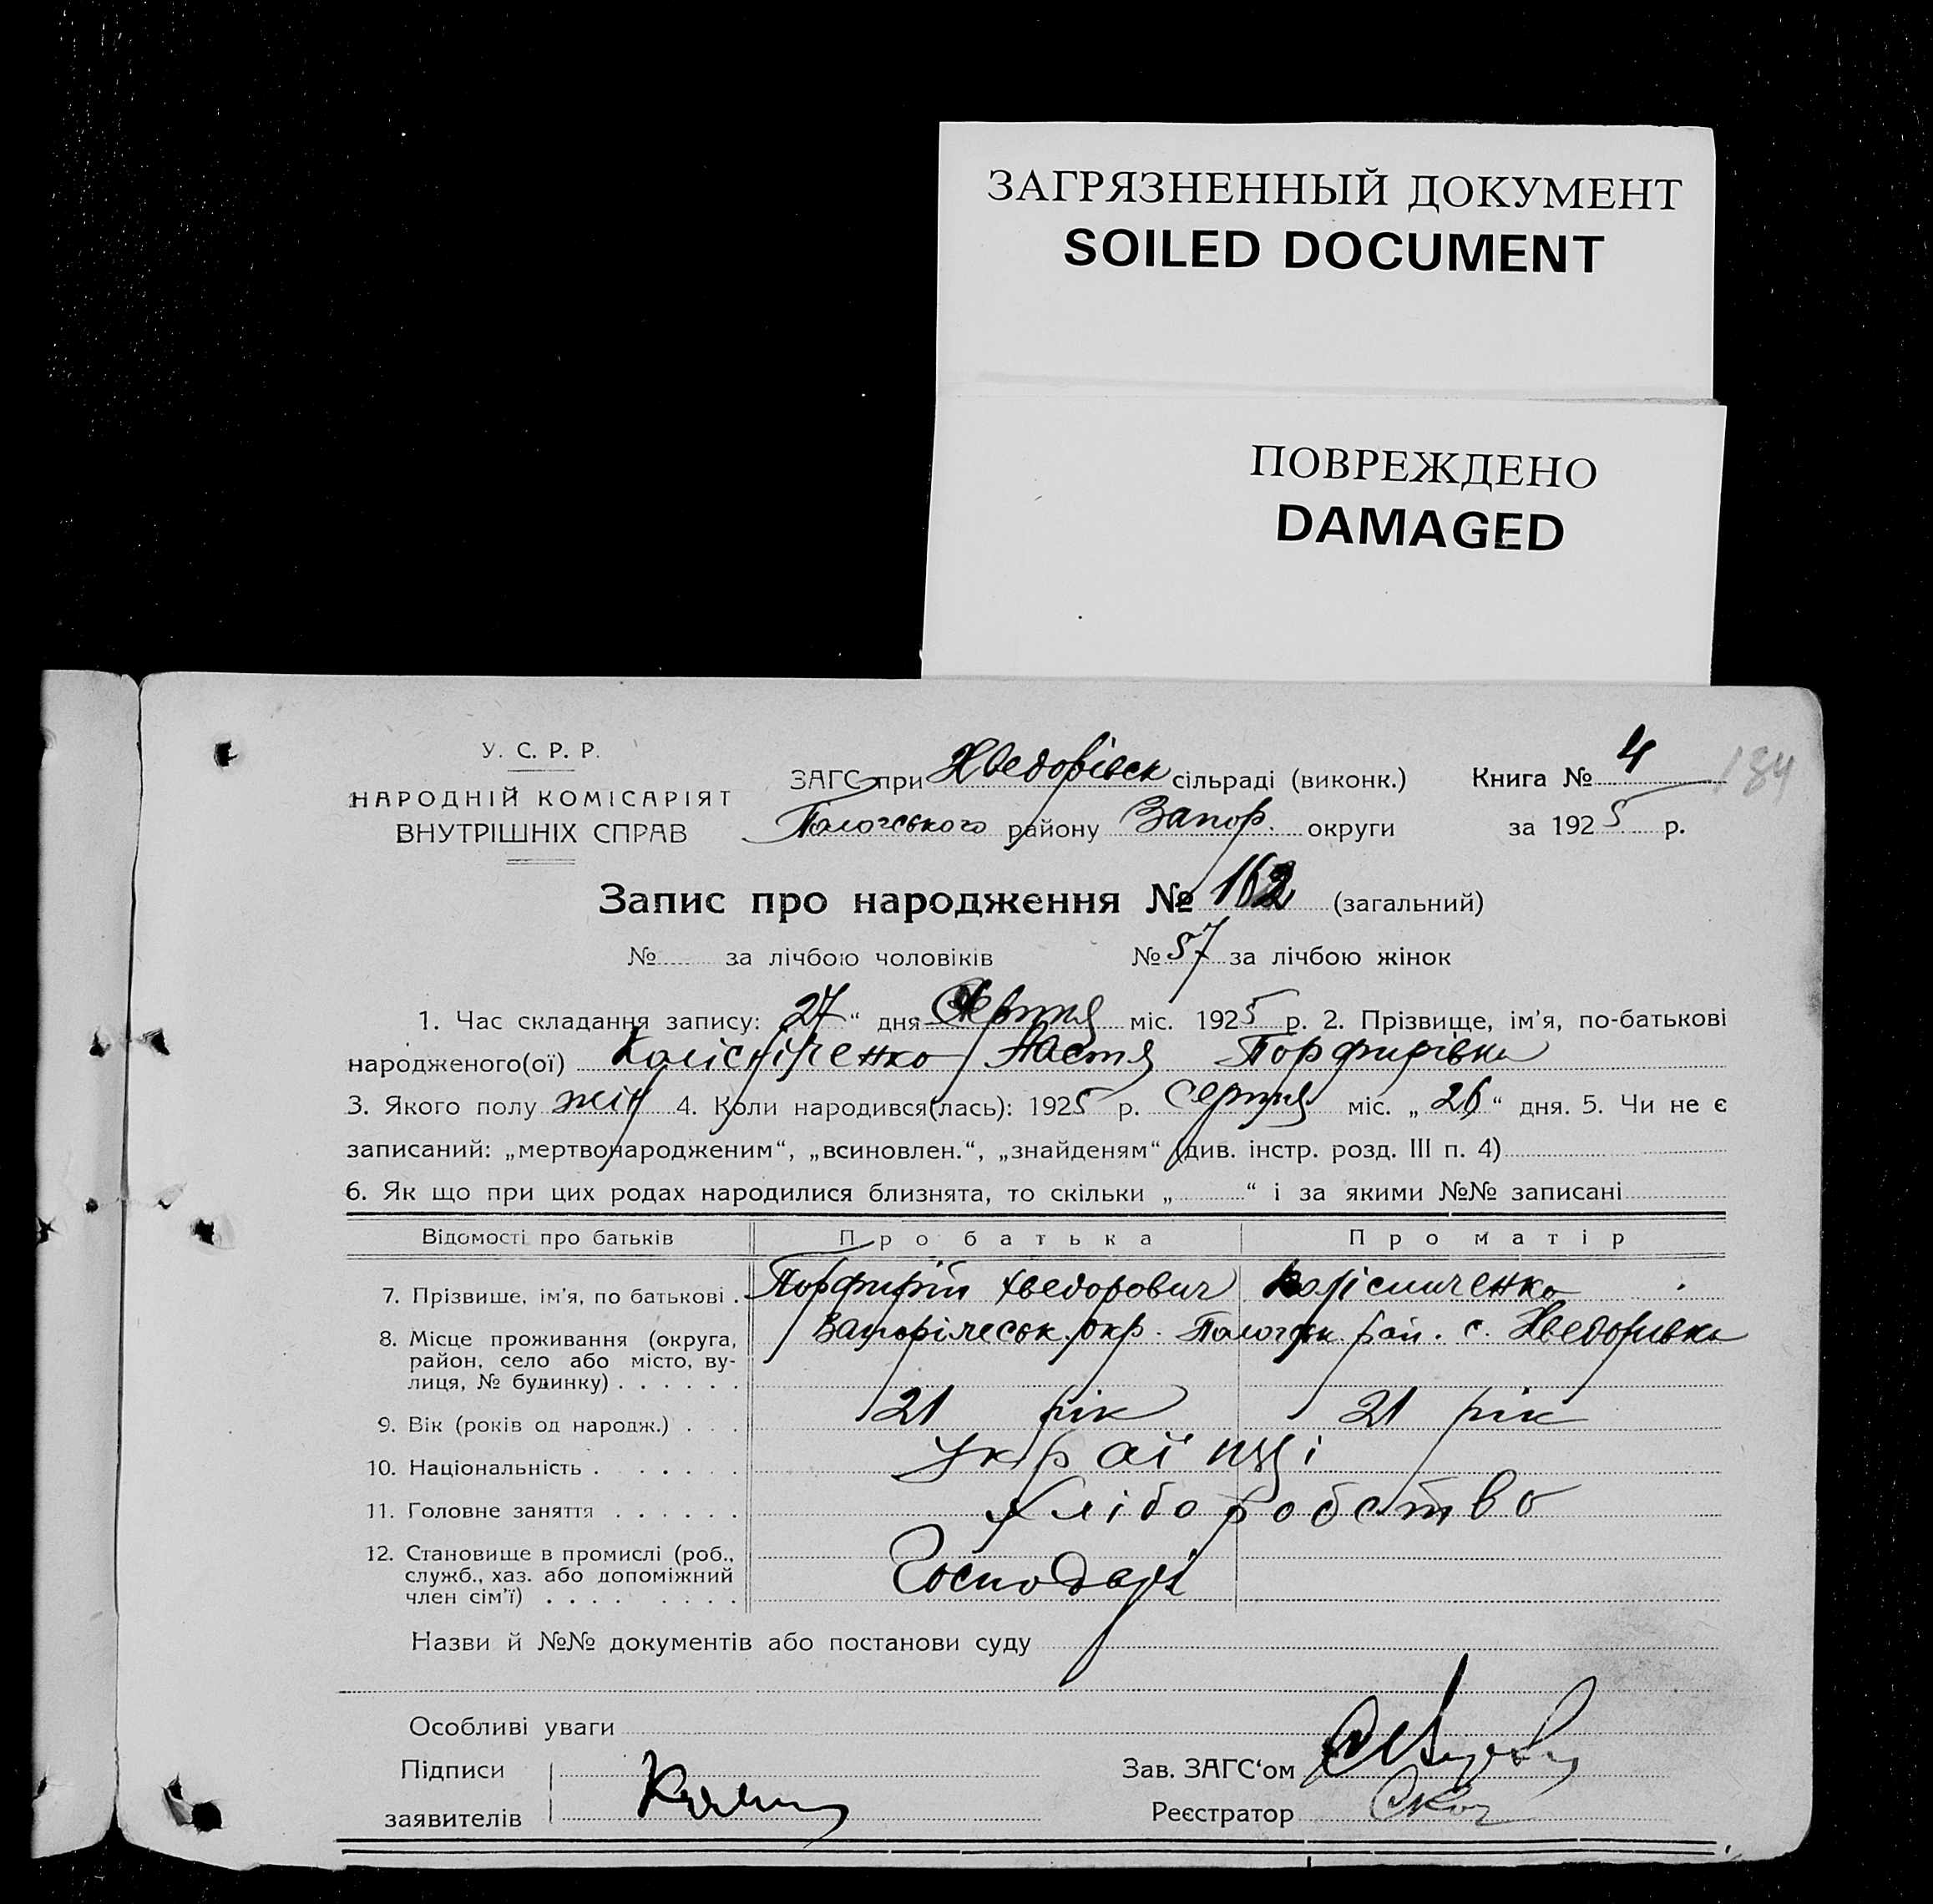 ЗАГРЯЗНЕННЫЙ ДОКУМЕНТ
SOILED DOCUMENT
ПОВРЕЖДЕНО
DAMAGED
У. С. Р. Р.
НАРОДНІЙ КОМІСАРІЯТ
ВНУТРІШНІХ СПРАВ
ЗАГС при Хведорівськ сільраді (виконк.) Книга № 4 184
Пологського району Запор. округи за 1925 р.
Запис про народження № 162 (загальний)
№ за лічбою чоловіків № 57 за лічбою жінок
1. Час складання запису: 27 “ дня Серпня міс. 1925 р. 2. Прізвище, ім’я, по-батькові
народженого(ої) Настя Порфирівна
3. Якого полу жін 4. Коли народився(лась): 1925 р. Серпня міс. „ 26 “ дня. 5. Чи не є
записаний: „мертвонародженим“, „всиновлен.“, „знайденям“ (див. інстр. розд. III п. 4)
6. Як що при цих родах народилися близнята, то скільки „ “ і за якими №№ записані
Відомості про батьків Про батька Про матір
7. Прізвише, ім’я, по батькові . Порфирій Хведорович Колісниченко
8. Місце проживання (округа, Запоріжськ. окр. Пологськ. рай. с. Хведоривка
район, село або місто, ву-
лиця, № будинку) . . . . . .
9. Вік (років од народж.) . . . 21 рік 21 рік
10. Національність . . . . . . українці
11. Головне заняття . . . . . . хліборобство
12. Становище в промислі (роб.,
служб., хаз. або допоміжний Господарі
член сім’ї) . . . . . . . .
Назви й №№ документів або постанови суду
Особливі уваги
Підписи Зав. ЗАГС‘ом
заявителів Реєстратор